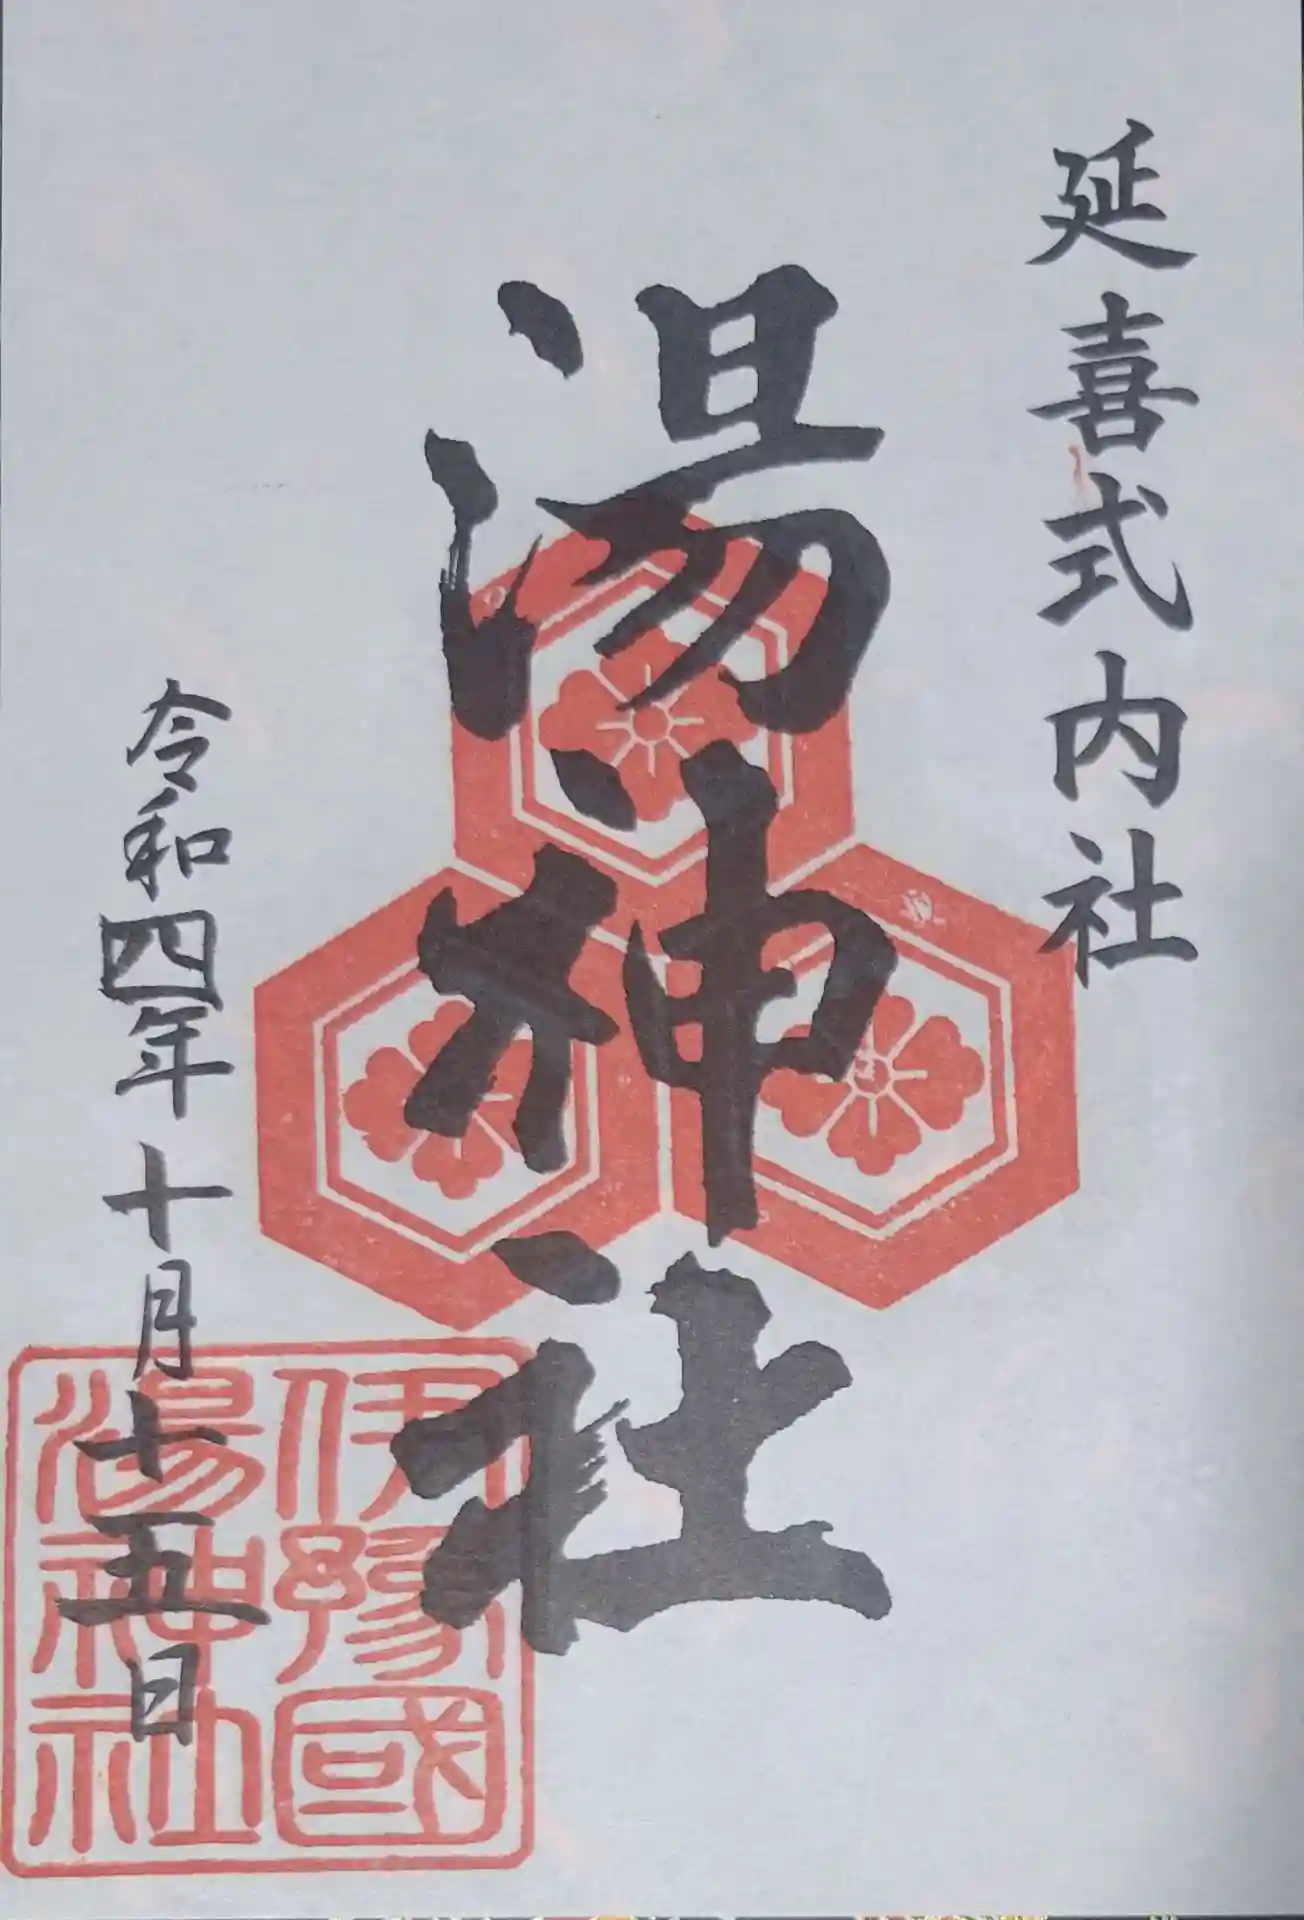 延喜式内社
湯神社
令和四年十月十五日
伊豫國
湯神社